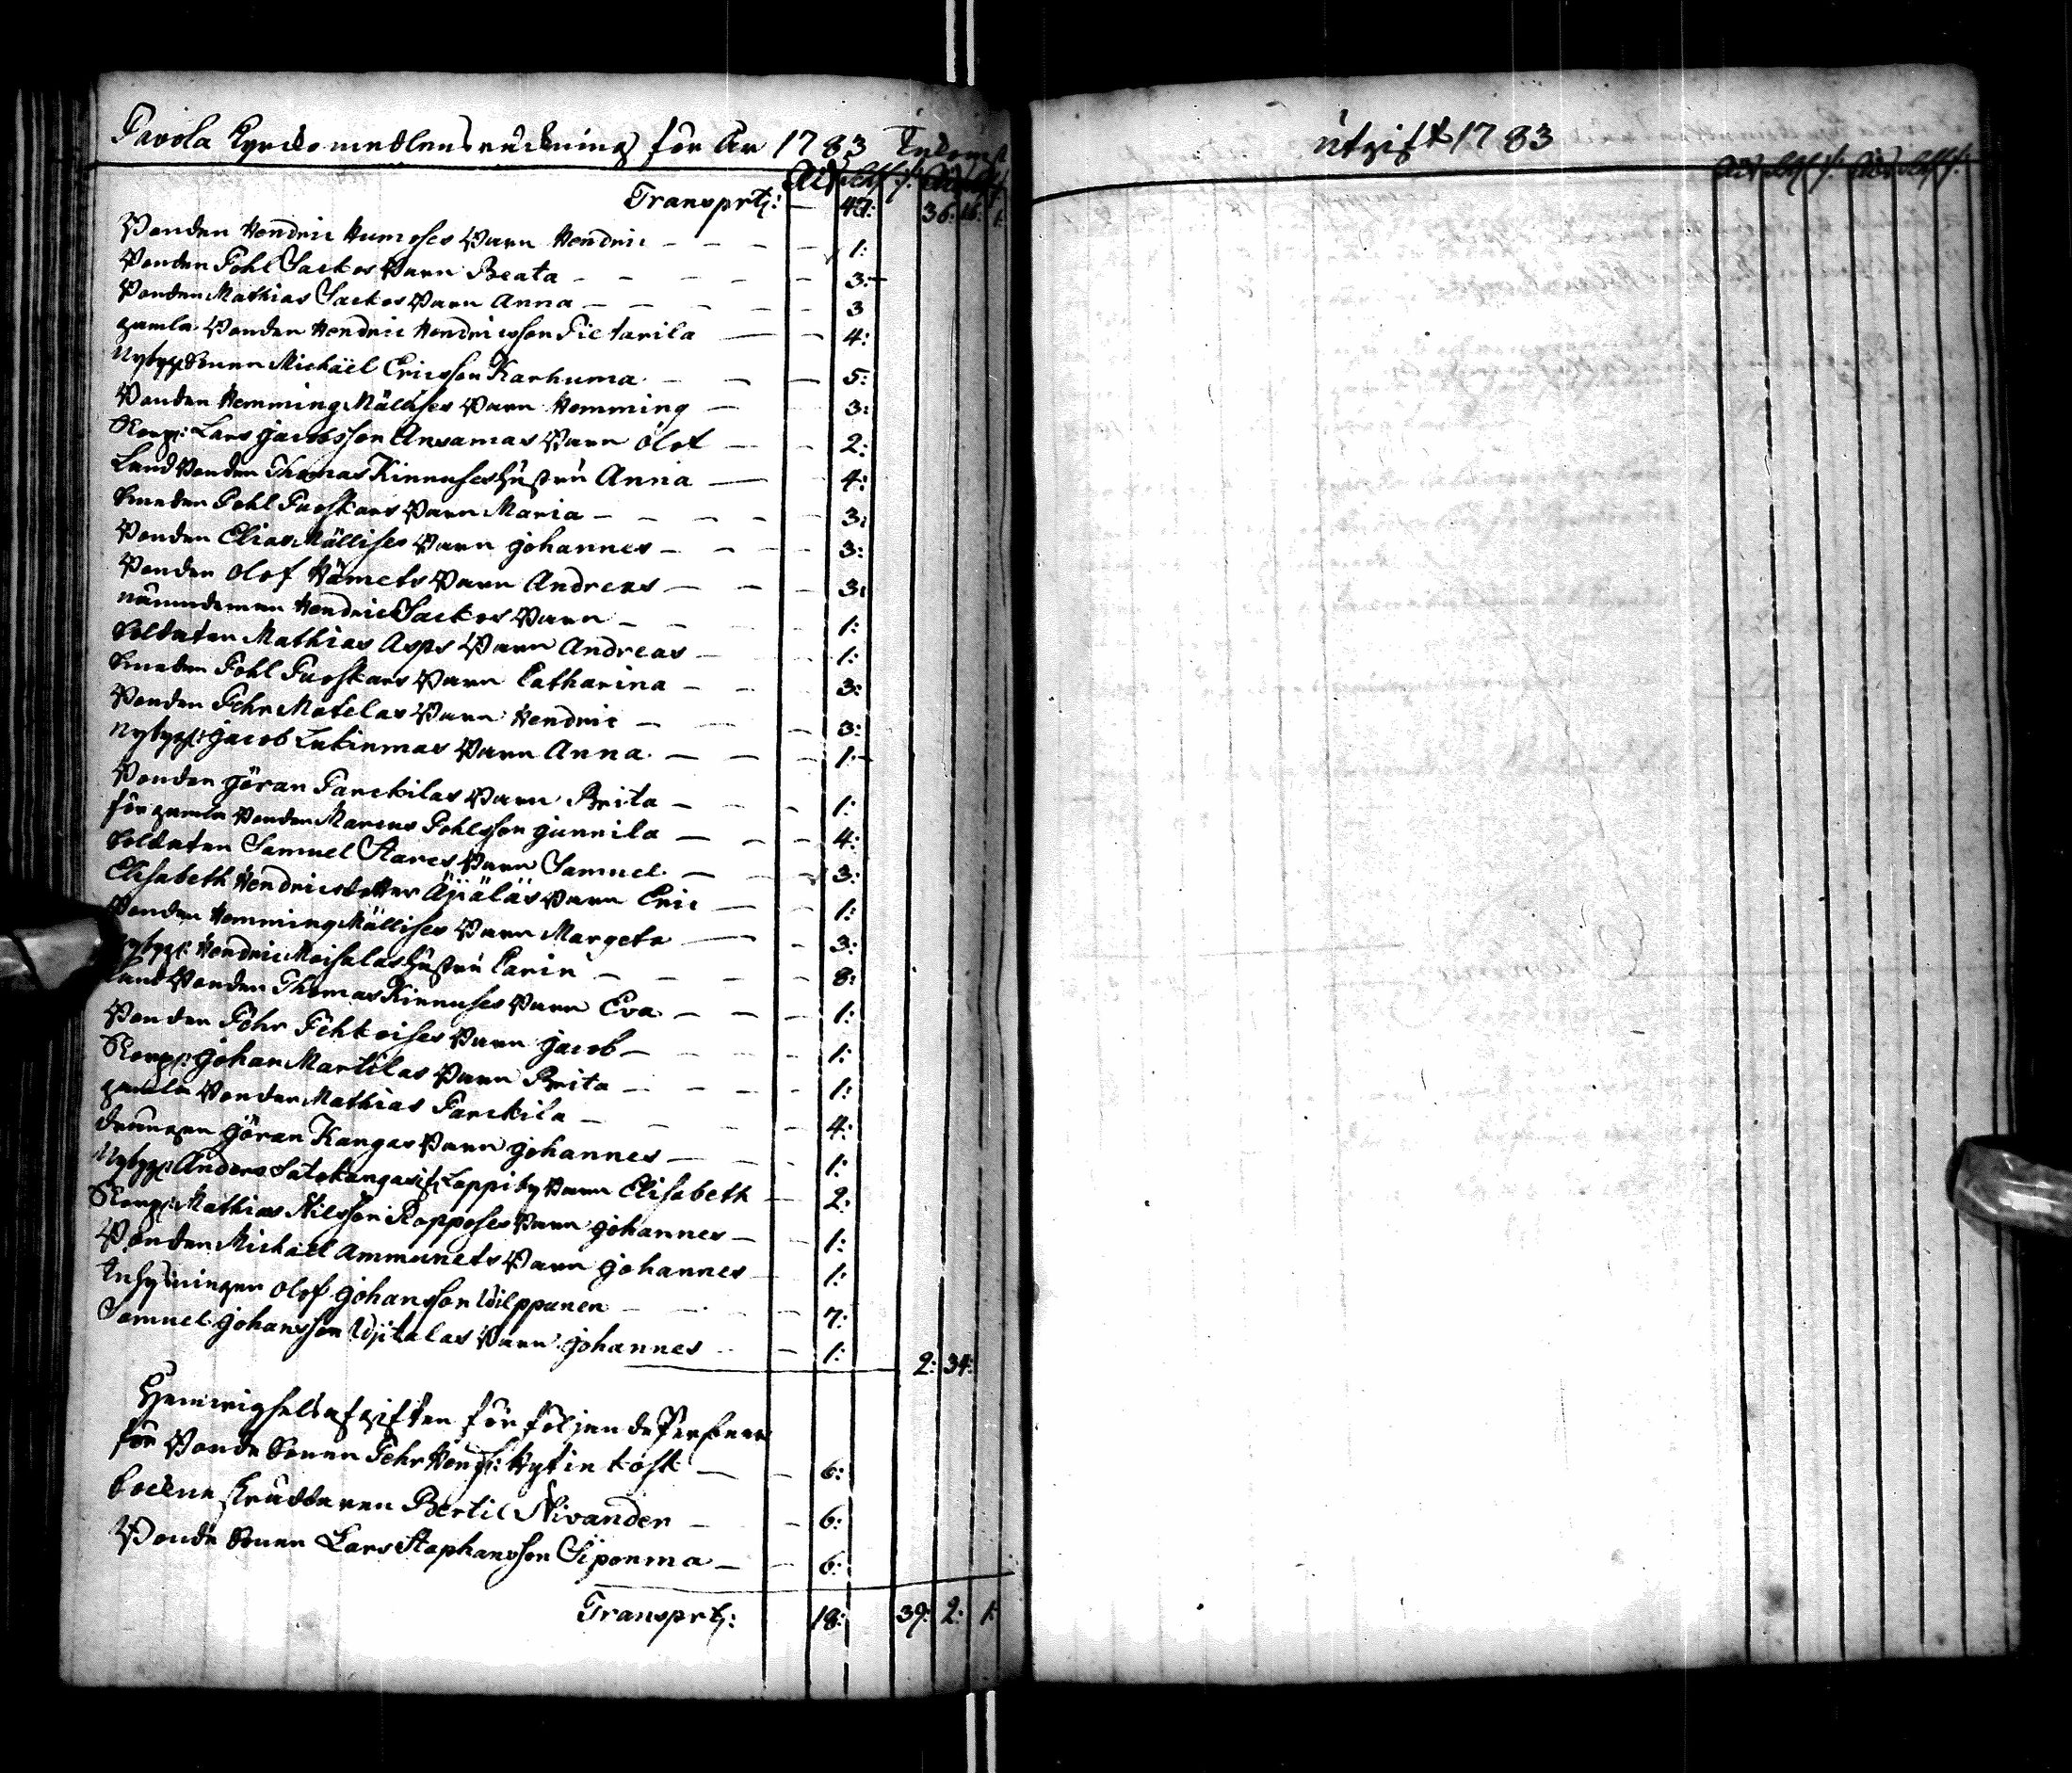 Pavola Kyrckomedlens räckning för År 1783 Inkomst
Rdr sch. r. Rdr sch. r.
Transprt: — 47: 36: 16: 1
Bonden Hendric Humoses Barn Hendric — 1:
Bonden Pohl Sackos Barn Beata — 3:
Bonden Mathias Sackos Barn Anna — 3
gamla Bonden Hendric Hendricsson Pietarila — 4:
Nybygg: Sonen Michäel Ericsson Karhuma — 5:
Bonden Hemming Mällises Barn Hemming — 3:
Korp: Lars Jacobsson Ansamas Barn Olof — 2:
Land Bonden Thomas Kinnuses hustru Anna — 4:
Smeden Pohl Puoskars Barn Maria — 3:
Bonden Elias Mällises Barn Johannes — 3:
Bonden Olof Hämets Barn Andreas — 3:
nämndeman Hendric Sackos Barn — 1:
Soldaten Mathias Asps Barn Andreas — 1:
Smeden Pohl Puoskars Barn Catharina — 3:
Bonden Pehr Matelas Barn Hendric — 3:
Nybygg: Jacob Lukinmas Barn Anna — 1:
Bonden Göran Parckilas Barn Brita — 1:
för gamla Bonden Marcus Pohlsson Junnila — 4:
Soldaten Samuel Stares Barn Samuel — 3:
Elisabeth Hendricsdotter Äijäläs Barn Eric — 1:
Bonden Hemming Mällises Barn Margeta — 3:
Nybygg: Hendric Moisalas hustru Carin — 8:
Land Bonden Thomas Kinnuses Barn Eva — 1:
Bonden Pehr Pehkoises Barn Jacob — 1:
Korp: Johan Martilas Barn Brita — 1:
gamla Bonden Mathias Parckila — 4:
drängen Göran Kangas Barn Johannes — 1:
Nybygg: Anders Satokangas if: Lappi by Barn Elisabeth — 2:
Korp: Mathias Nilsson Ropposes Barn Johannes — 1:
Bonden Michäel Ammunets Barn Johannes — 1:
Inhysningen Olof Johansson Wilppunen — 7:
Samuel Johansson Uijtalas Barn Johannes — 1: 2: 34:
Hemvigsels afgiften för följande Personer
för Bonde Sonen Pehr Hend: Hytinkosk — 6:
Sockne skräddaren Bertil Nivander — 6:
Bonde Sonen Lars Staphansson Siponma — 6:
Transprt: 18: 39: 2: 1:
Utgift 1783
Rdr sch. r. Rdr sch. r.